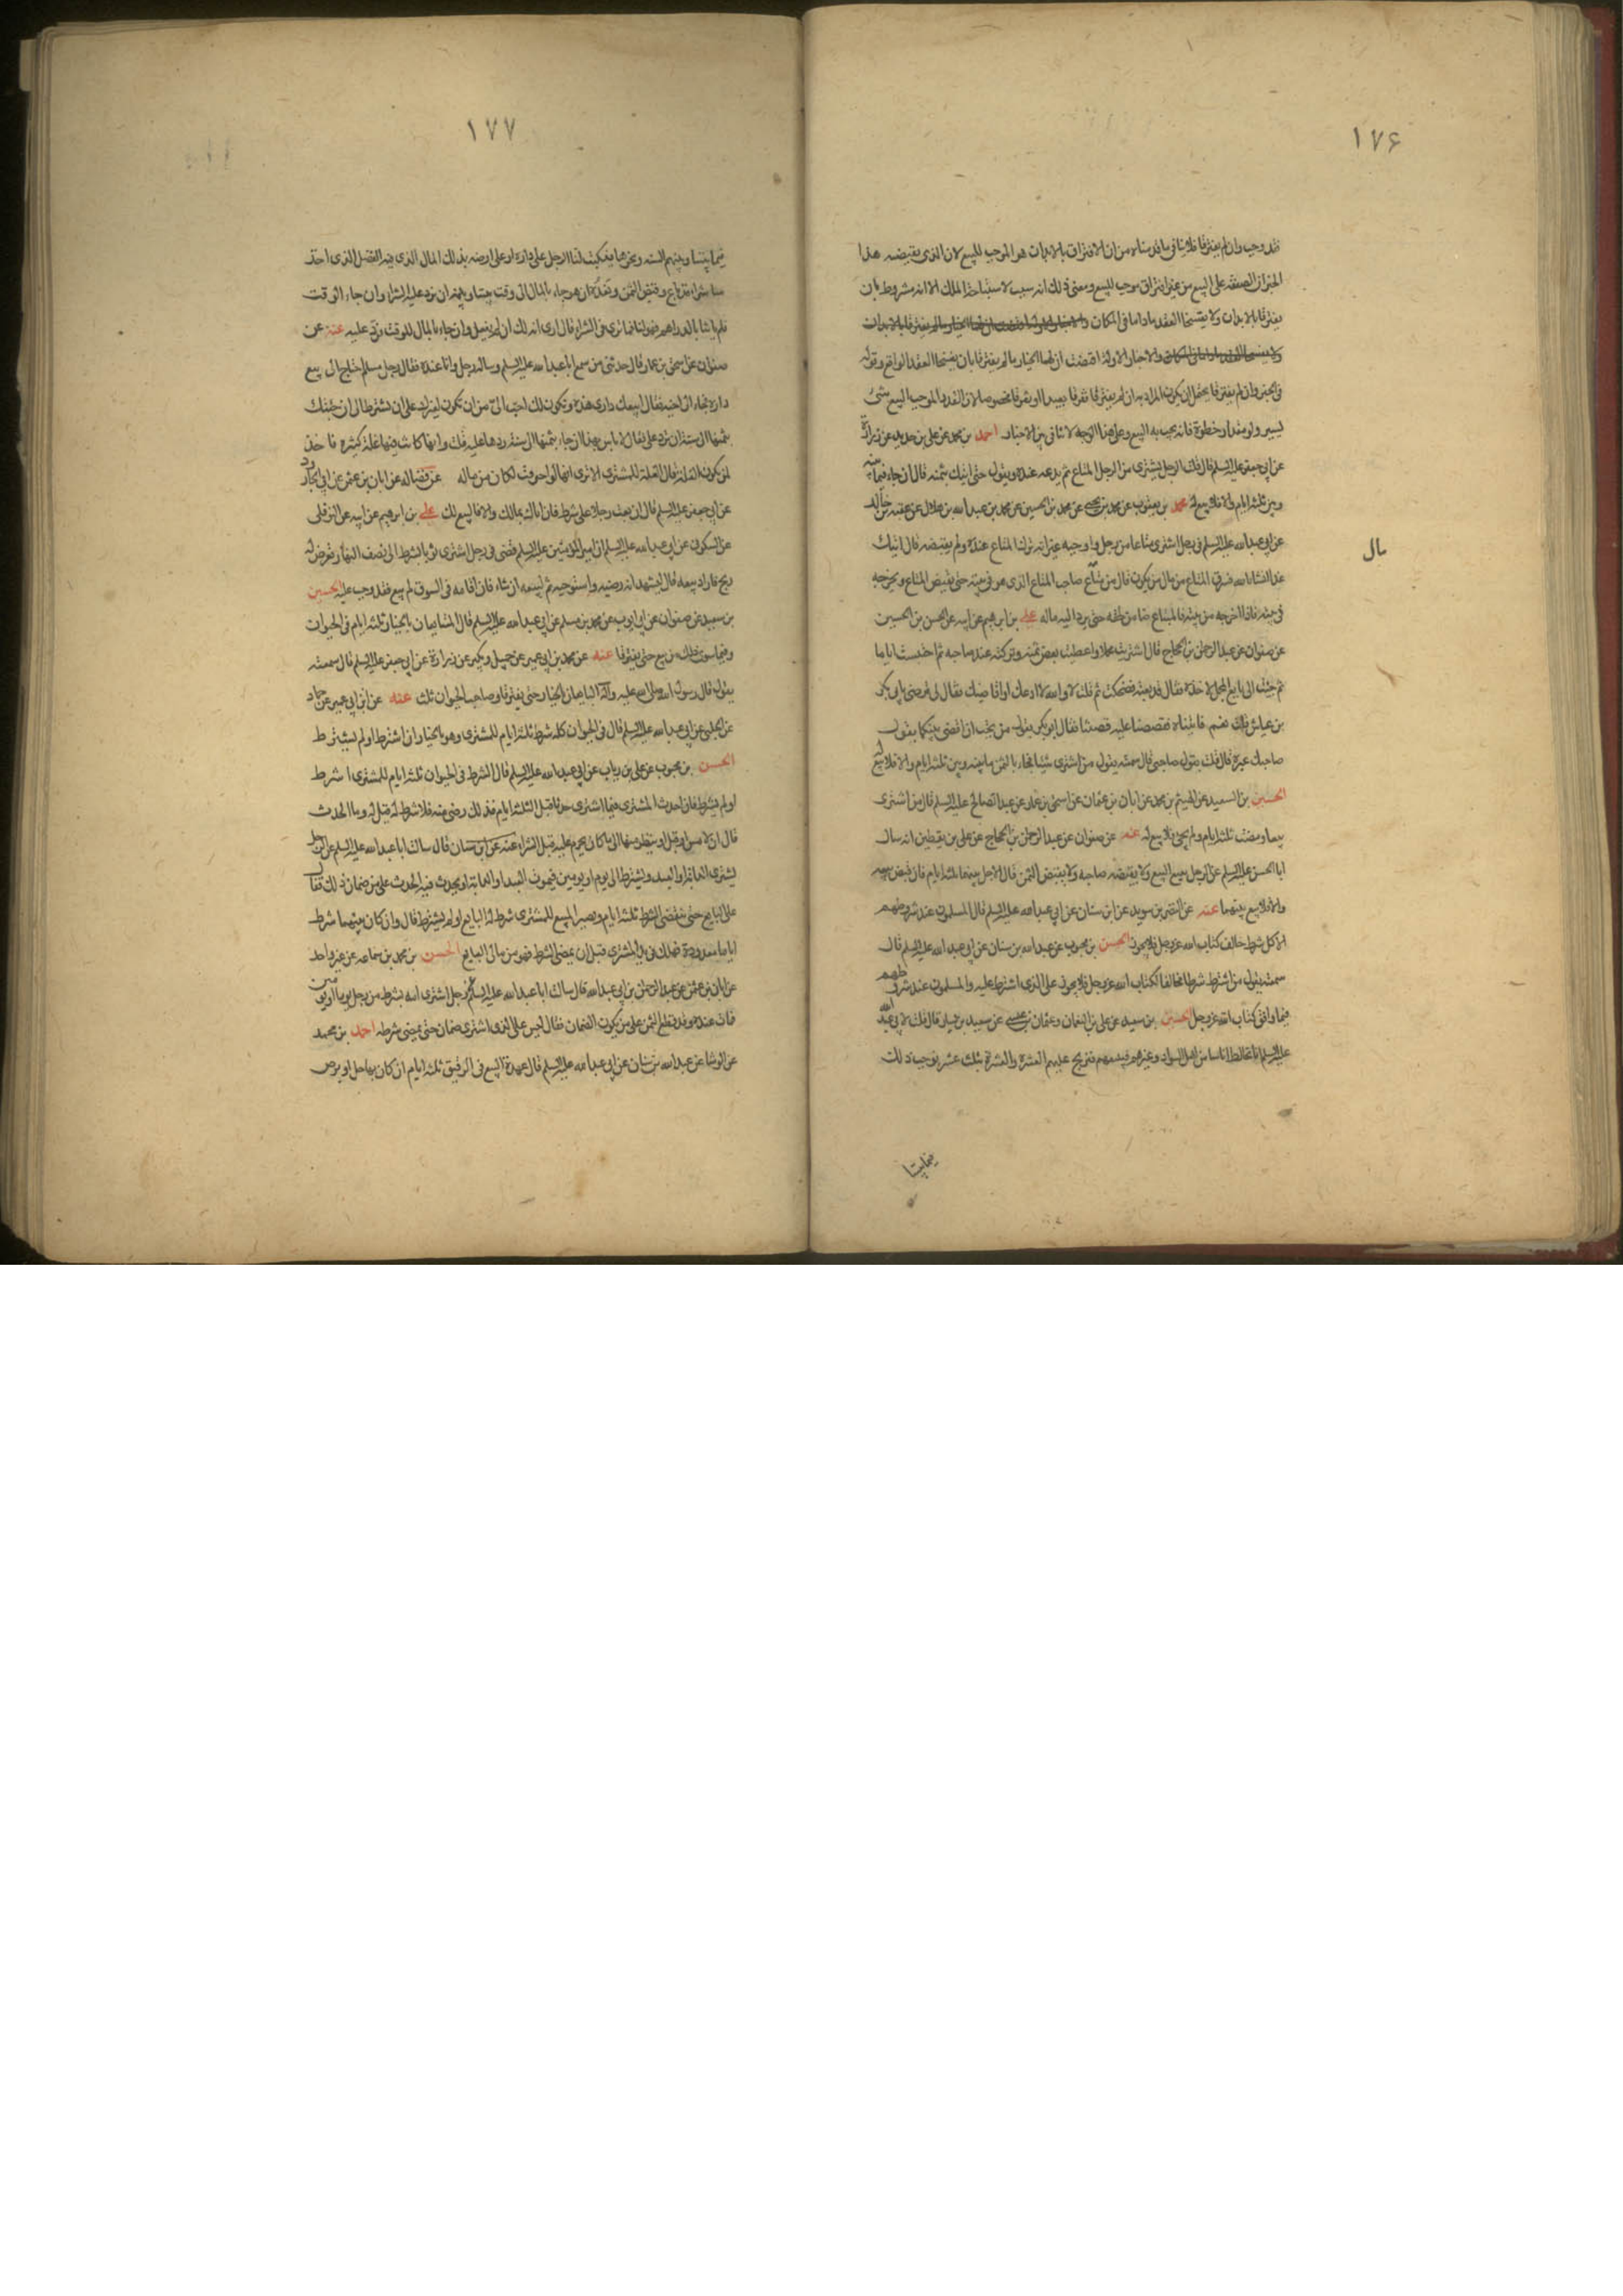 ١٧۶
فقد وجب وان لم يفترقا فلا ينافي ما قدمناه من ان الافتراق بالابدان هو الموجب للبيع لان الذى يقتضيه هذا
الخبر ان الصفقة على البيع من غير افتراق موجب للبيع ومعنى ذلك انه سبب لاستباحة الملك الا انه مشروط بان
يفترقا بالابدان ولا يفسخا العقد ماداما في المكان
والاخبار الاولة اقتضت ان لهما الخيار مالم يفترقا بان يفسخا العقد الواقع وقوله
في الخبر وان لم يفترقا يحتمل ان يكون المراد به ان لم يفترقا تفرقا بعيدا او تفرقا مخصوصا لان القدر الموجب للبيع شئ
يسير ولو مقدار خطوة فانه يجب به البيع وعلى هذا الوجه لا تنافي بين الاخبار احمد بن محمد عن علي بن حديد عن زرارة
عن ابي جعفر عليه السلم قال قلت الرجل يشترى من الرجل المتاع ثم يدعه عنده ويقول حتى اتيك بثمنه قال ان جاء فيما بينه
وبين ثلثة ايام والا فلا بيع له محمد بن يعقوب عن محمد بن يحيى عن محمد بن الحسين عن محمد بن عبد الله بن هلال عن عقبة بن خالد
عن ابي عبد الله عليه السلم في رجل اشترى متاعا من رجل واوجبه غير انه ترك المتاع عنده ولم يقبضه قال اتيك
مال
غدا انشاء الله فسرق المتاع من مال من يكون قال من متاع صاحب المتاع الذى هو في بيته حتى يقبض المتاع ويخرجه
من بيته فاذا اخرجه من بيته فالمبتاع ضامن لحقه حتى يرد اليه ماله علي بن ابرهيم عن ابيه عن الحسن بن الحسين
عن صفوان عن عبد الرحمن بن الحجاج قال اشتريت محملا واعطيت بعض ثمنه وتركته عند صاحبه ثم احتبست اياما
ثم جئت الى بايع المحمل لاخذه فقال قد بعته فضحكت ثم قلت لا والله لا ادعك او اقاضيك فقال لي ترضى بابي بكر
بن عياش قلت نعم فاتيناه فقصصنا عليه قصتنا فقال ابو بكر بقول من تحب ان اقضي بينكما بقول
صاحبك او غيره قال قلت بقول صاحبي قال سمعته يقول من اشترى شيئا فجاء بالثمن ما بينه وبين ثلثة ايام والا فلا بيع له
الحسين بن السعيد عن الهيثم بن محمد عن ابان بن عثمان عن اسحق بن عمار عن عبد صالح عليه السلم قال من اشترى
بيعا ومضت ثلثة ايام ولم يجئ فلا بيع له عنه عن صفوان عن عبد الرحمن بن الحجاج عن علي بن يقطين انه سال
ابا الحسن عليه السلم عن الرجل يبيع البيع ولا يقبضه صاحبه ولا يقبض الثمن قال الاجل بينهما ثلثة ايام فان قبض بيعه
والا فلا بيع بينهما عنه عن النضر بن سويد عن ابن سنان عن ابي عبد الله عليه السلم قال المسلمون عند شروطهم
الا كل شرط خالف كتاب الله عز وجل فلا يجوز الحسن بن محبوب عن عبد الله بن سنان عن ابي عبد الله عليه السلم قال
سمعته يقول من اشترط شرطا مخالفا لكتاب الله عز وجل فلا يجوز على الذى اشترط عليه والمسلمون عند شروطهم
فيما وافق كتاب الله عز وجل الحسين بن سعيد عن علي بن النعمان وعثمان بن عيسى عن سعيد بن يسار قال قلت لابي عبد الله
عليه السلم انا نخالط اناسا من اهل السواد وغيرهم فنبيعهم ونربح عليهم العشرة والعشرة ثلث عشر ونوجب ذلك
فيما بيننا
١٧٧
فيما بيننا وبينهم السنة ونحوها فيكتب لنا الرجل على داره او على ارضه بذلك المال الذى فيه الفضل الذى اخذ
منا شراء قد باع وقبض الثمن ونعده ان هو جاء بالمال الى وقت بيننا وبينه ان نرد عليه الشراء وان جاء الوقت
فلم ياتنا بالدراهم فهو لنا فما ترى في الشراء قال ارى انه لك ان لم يفعل وان جاء بالمال للوقت فرد عليه عنه عن
صفوان عن اسحق بن عمار قال حدثني من سمع ابا عبد الله عليه السلم وساله رجل وانا عنده فقال رجل مسلم احتاج الى بيع
داره فجاء الى اخيه فقال ابيعك دارى هذه وتكون لك احب الي من ان تكون لغيرك على ان تشترط لي ان جئتك
بثمنها الى سنة ان ترد علي فقال لا باس بهذا ان جاء بثمنها الى سنة ردها عليه قلت وانها كانت فيها غلة كثيرة فاخذ
لمن تكون الغلة فقال الغلة للمشترى الا ترى انها لو احترقت لكان من ماله عن فضالة عن ابان بن عثمن عن ابي الجارود
عن ابي جعفر عليه السلم قال ان بعت رجلا على شرط فان اتاك بمالك والا فالبيع لك علي بن ابرهيم عن ابيه عن النوفلى
عن السكونى عن ابي عبد الله عليه السلم ان امير المؤمنين عليه السلم قضى في رجل اشترى ثوبا بشرط الى نصف النهار فعرض له
ربح فاراد بيعه قال ليشهد انه رضيه واستوجبه ثم ليبعه ان شاء فان اقامه في السوق لم يبع فقد وجب عليه الحسين
بن سعيد عن صفوان عن ابي ايوب عن محمد بن مسلم عن ابي عبد الله عليه السلم قال المتبايعان بالخيار ثلثة ايام في الحيوان
وفيما سوى ذلك من بيع حتى يفترقا عنه عن محمد بن ابي عمير عن جميل وبكير عن زرارة عن ابي جعفر عليه السلم قال سمعته
يقول قال رسول الله صلى الله عليه وآله البايعان بالخيار حتى يفترقا وصاحب الحيوان ثلث عنه عن ابن ابي عمير عن حماد
عن الحلبي عن ابي عبد الله عليه السلم قال في الحيوان كله شرط ثلثة ايام للمشترى وهو بالخيار ان اشترط او لم يشترط
الحسن بن محبوب عن علي بن رياب عن ابي عبد الله عليه السلم قال الشرط في الحيوان ثلثة ايام للمشترى اشرط
او لم يشترط فان احدث المشترى فيما اشترى حدثا قبل الثلثة ايام فذلك رضى منه فلا شرط له قيل له وما الحدث
قال ان لامس او قبل او ينظر منها الى ما كان يحرم عليه قبل الشراء عنه عن ابن سنان قال سالت ابا عبد الله عليه السلم عن الرجل
يشترى الدابة او العبد ويشترط الى يوم او يومين فيموت العبد او الدابة او يحدث فيه الحدث على من ضمان ذلك فقال
على البايع حتى ينقضى الشرط ثلثة ايام ويصير المبيع للمشترى شرط له البايع او لم يشترط قال وان كان بينهما شرط
اياما معدودة فهلك في يد المشترى قبل ان يمضى الشرط فهو من مال البايع الحسن بن محمد بن سماعه عن غير واحد
عن ابان بن عثمن عن عبد الرحمن بن ابي عبد الله قال سالت ابا عبد الله عليه السلم عن رجل اشترى امة بشرط من رجل يوما او يومين
فماتت عنده وقد قطع الثمن على من يكون الضمان فقال ليس على الذى اشترى ضمان حتى يمضى شرطه احمد بن محمد
عن الوشا عن عبد الله بن سنان عن ابي عبد الله عليه السلم قال عهدة البيع في الرقيق ثلثة ايام ان كان بها حبل او برص